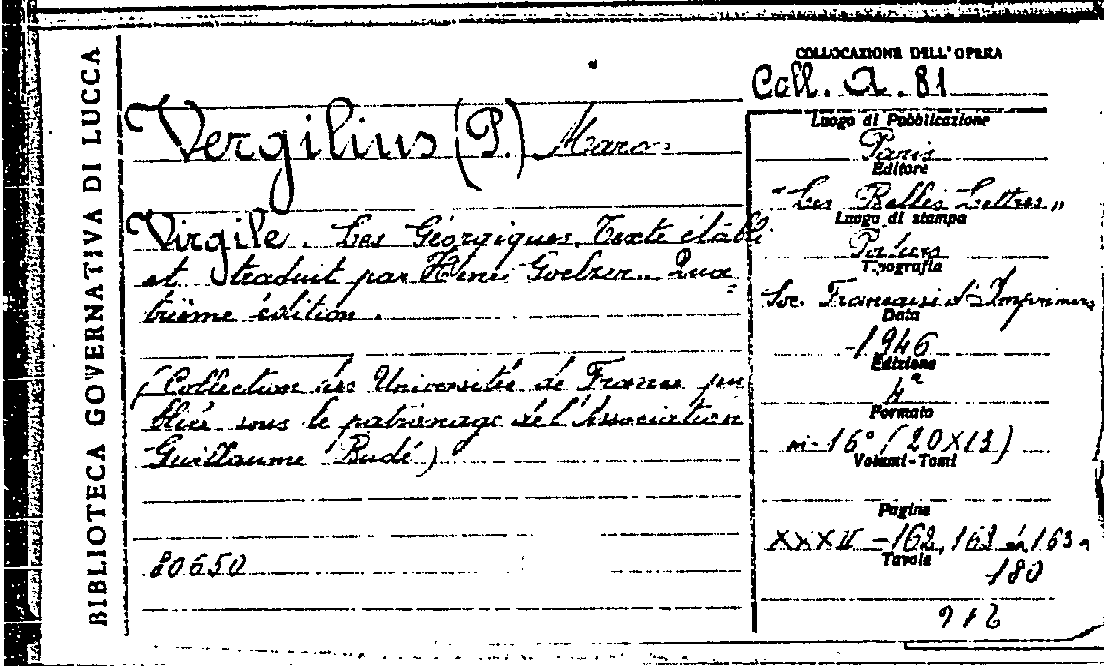 BIBLIOTECA GOVERNATIVA DI LUCCA
COLLOCAZIONE DELL'OPERA
Coll. A. 81
Vergilius (P.) Maro.
Virgile. Les Géorgiques. Texte établi
et traduit par Henri Goelzer. Qua=
trième édition.
(Collection des Universités de France pu
bliée sous le patronage de l'Association
Guillaume Budé)
80650
Luogo di Pubblicazione
Paris
Editore
"Les Belles Lettres"
Luogo di stampa
Poitiers
Tipografia
Soc. Française d'Imprimerie
Data
1946
Edizione
4ª
Formato
in-16° (20X13)
Volumi-Tomi
Pagine
XXXIV -162, 163
Tavole
180